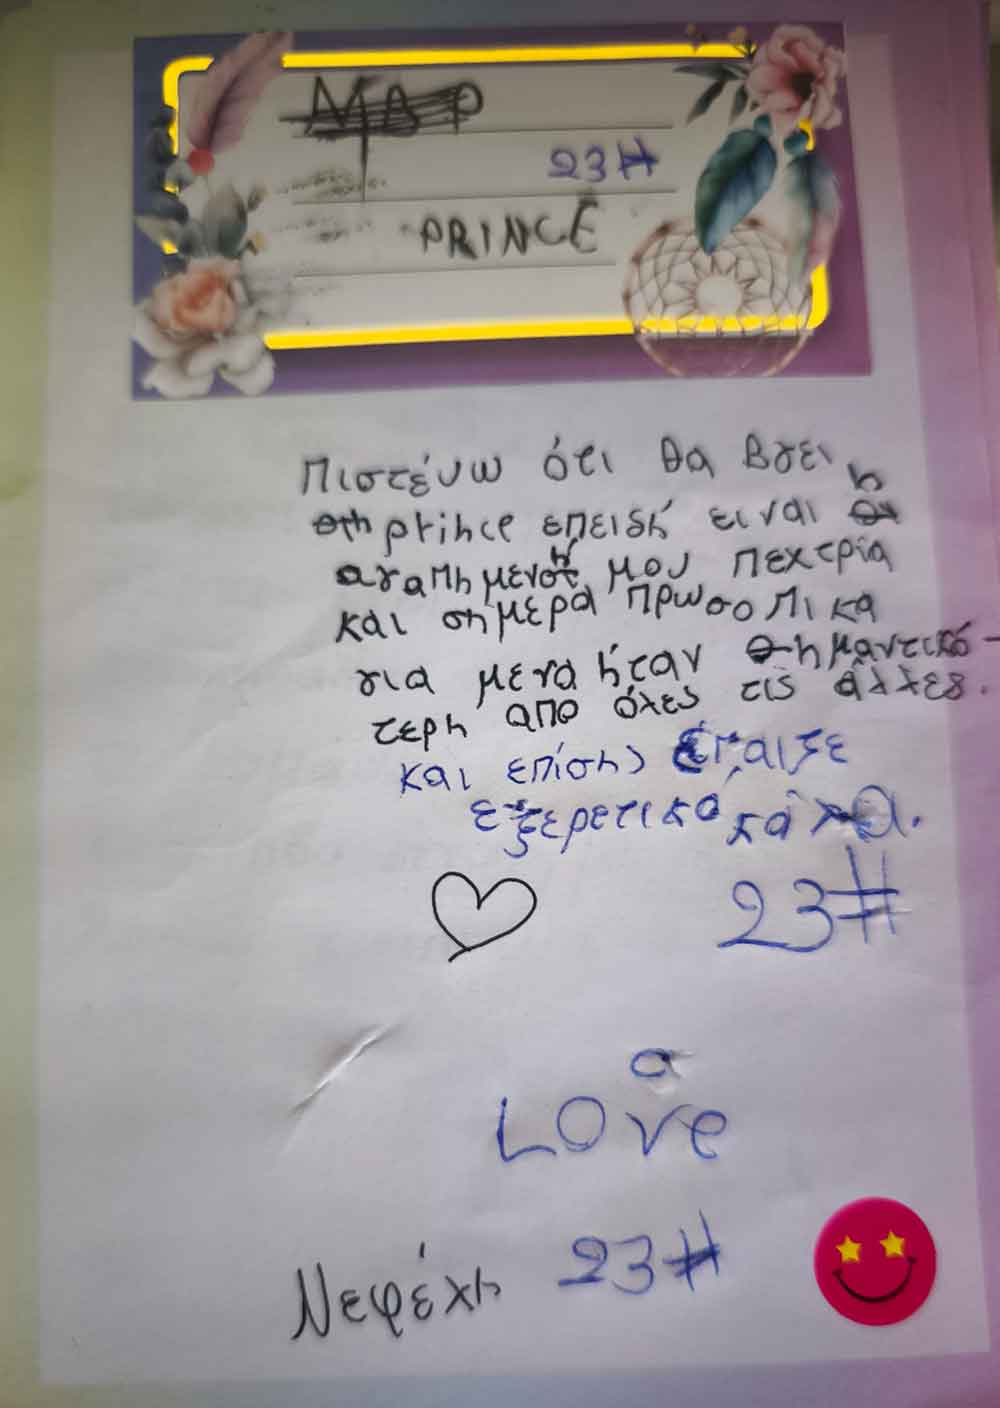 23#
PRINCE
Πιστέυω ότι θα βγει
η prince επειδή ειναι η
αγαπημενή μου πεχτρία
και σήμερα πρωσοπικα
για μενα ήταν σημαντικό-
τερη απο όλες τις άλλες.
και επίσης έπαιξε
εξερετικά καλα.
23#
Love
Νεφέλη 23#